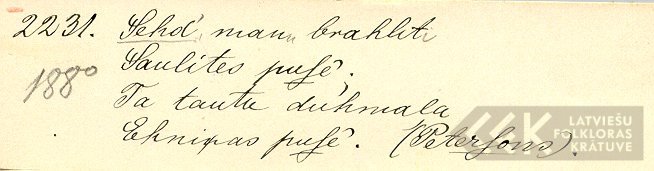 2231. Sehd', manu brahliti
1880
Saulites puſê,
Ta tautu duhmala
Ehniņas puſê. (Peterſons).
LATVIEŠU
FOLKLORAS
KRĀTUVE